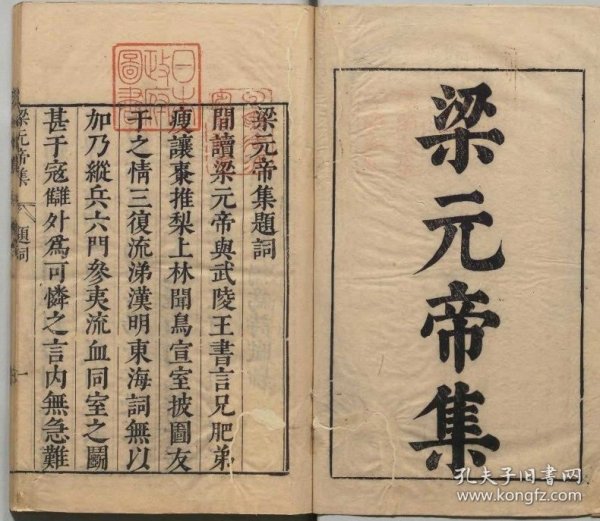 梁元帝集
梁元帝集題詞
閒讀梁元帝與武陵王書言兄肥弟
瘦讓棗推梨上林聞鳥宣室披圖友
于之情三復流涕漢明東海詞無以
加乃縱兵六門參夷流血同室之鬭
甚于寇讎外爲可憐之言內無急難
梁元帝集
題詞
一
日本
政府
圖書
孔夫子旧书网
www.kongfz.com